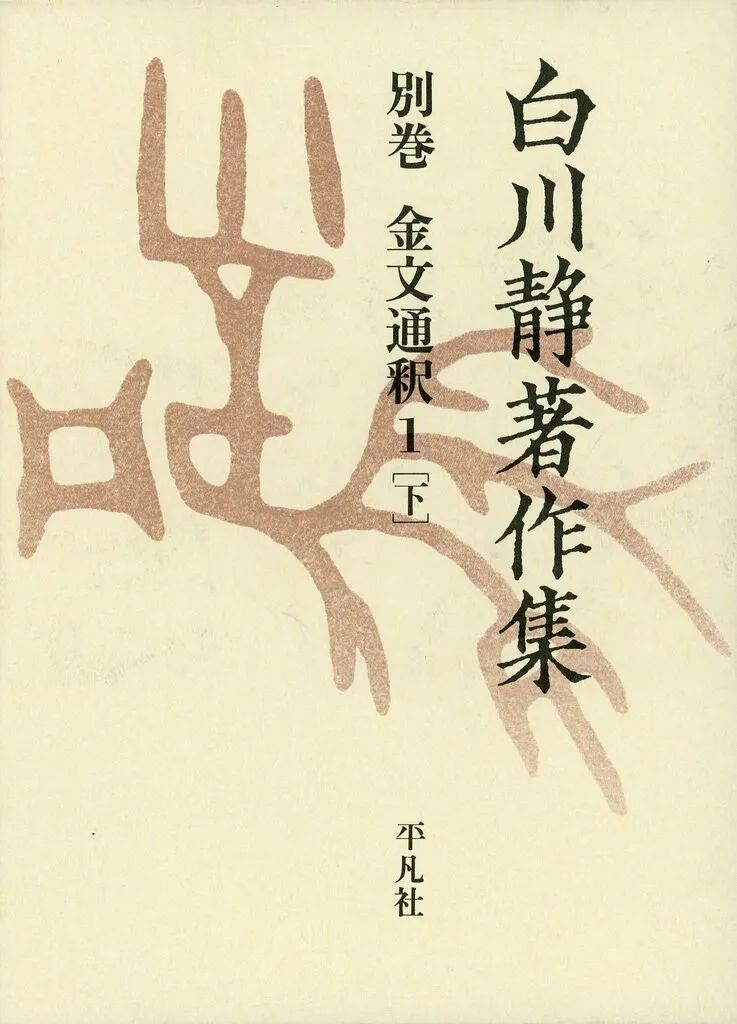 白川静著作集
別巻 金文通釈1[下]
平凡社